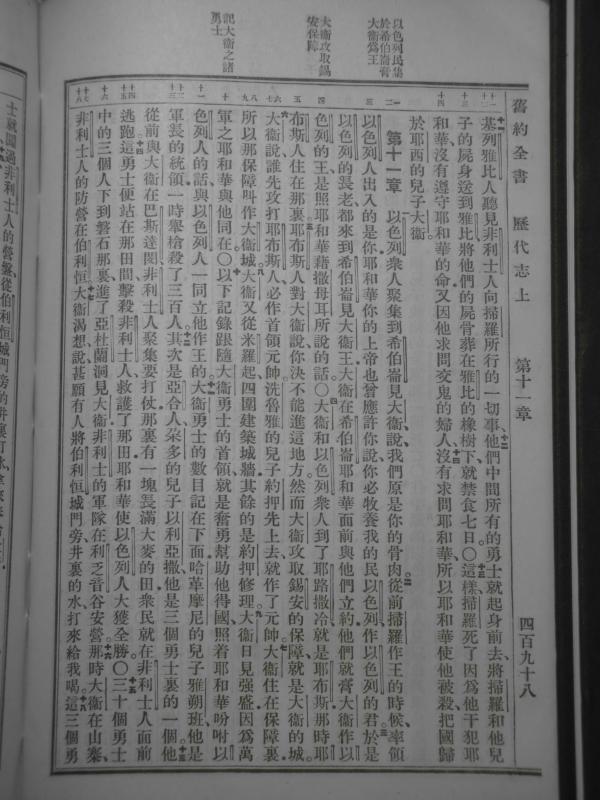 以色列民集
於希伯崙膏
大衛爲王
大衛攻取錫
安保障
記大衛之諸
勇士
舊約全書 歷代志上 第十一章 四百九十八
基列雅比人聽見非利士人向掃羅所行的一切事他們中間所有的勇士就起身前去將掃羅和他兒
子的屍身送到雅比將他們的屍骨葬在雅比的橡樹下就禁食七日〇這樣掃羅死了因爲他干犯耶
和華沒有遵守耶和華的命又因他求問交鬼的婦人沒有求問耶和華所以耶和華使他被殺把國歸
於耶西的兒子大衛
第十一章 以色列衆人聚集到希伯崙見大衛說我們原是你的骨肉從前掃羅作王的時候率領
以色列人出入的是你耶和華你的上帝也曾應許你說你必牧養我的民以色列作以色列的君於是
以色列的長老都來到希伯崙見大衛王大衛在希伯崙耶和華面前與他們立約他們就膏大衛作以
色列的王是照耶和華藉撒母耳所說的話〇大衛和以色列衆人到了耶路撒冷就是耶布斯那時耶
布斯人住在那裏耶布斯人對大衛說你決不能進這地方然而大衛攻取錫安的保障就是大衛的城
大衛說誰先攻打耶布斯人必作首領元帥洗魯雅的兒子約押先上去就作了元帥大衛住在保障裏
所以那保障叫作大衛城大衛又從米羅起四圍建築城牆其餘的是約押修理大衛日見強盛因爲萬
軍之耶和華與他同在〇以下記錄跟隨大衛勇士的首領就是奮勇幫助他得國照着耶和華吩咐以
色列人的話與以色列人一同立他作王的大衛勇士的數目記在下面哈革摩尼的兒子雅朔班他是
軍長的統領一時舉槍殺了三百人其次是亞合人朶多的兒子以利亞撒他是三個勇士裏的一個他
從前與大衛在巴斯達閔非利士人聚集要打仗那裏有一塊長滿大麥的田衆民就在非利士人面前
逃跑這勇士便站在那田間擊殺非利士人救護了那田耶和華使以色列人大獲全勝〇三十個勇士
中的三個人下到磐石那裏進了亞杜蘭洞見大衛非利士的軍隊在利乏音谷安營那時大衛在山寨
非利士人的防營在伯利恒大衛渴想說甚願有人將伯利恒城門旁井裏的水打來給我喝這三個勇
士就闖過非利士人的營盤從伯利恒城門旁的井裏打水